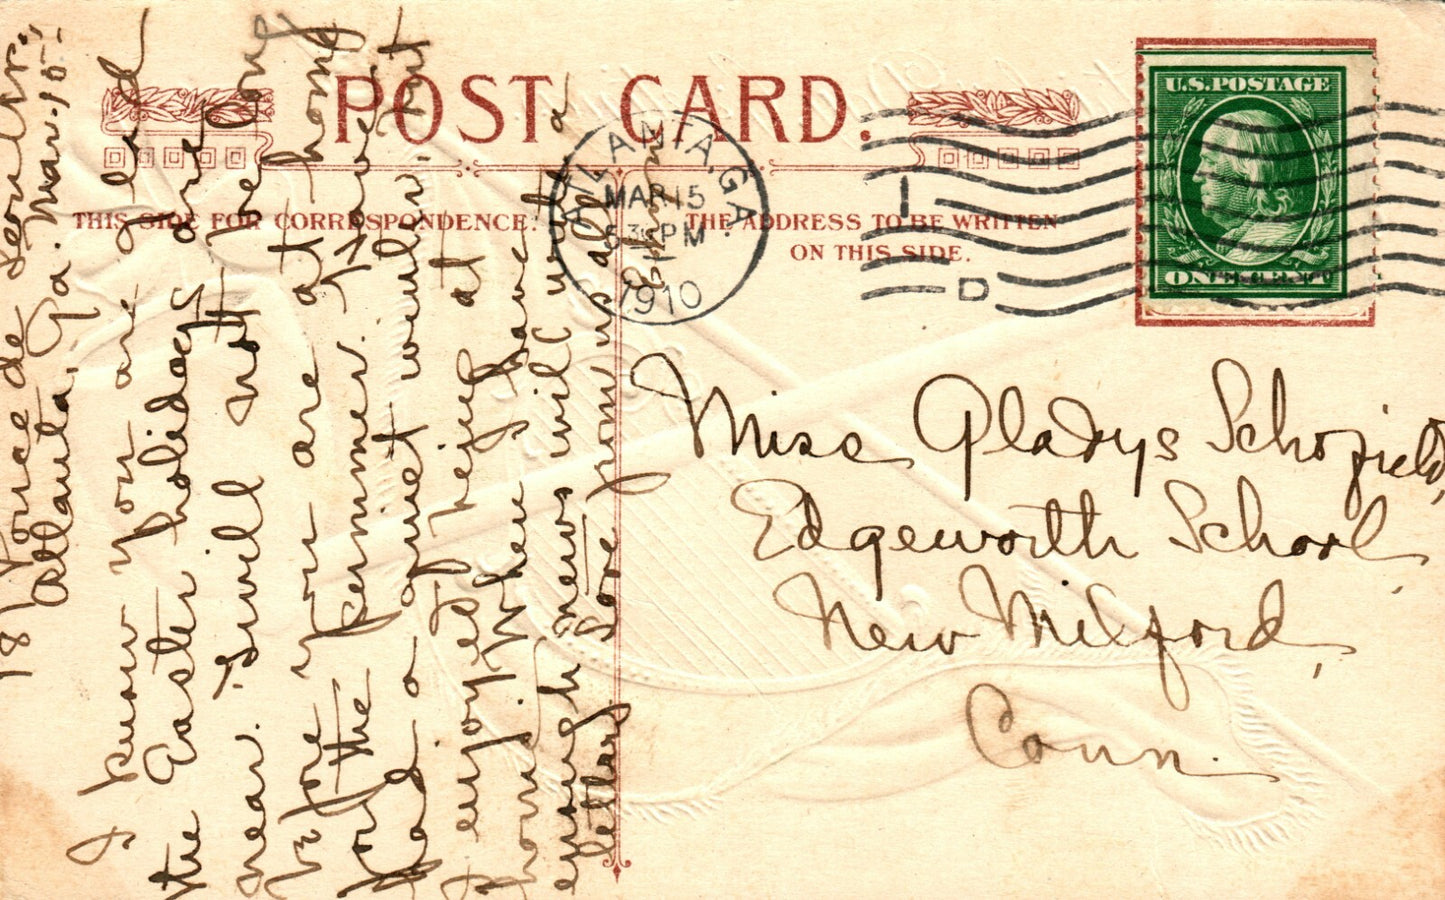 POST CARD.
THIS SIDE FOR CORRESPONDENCE.
THE ADDRESS TO BE WRITTEN
ON THIS SIDE.
U.S. POSTAGE
ATLANTA, GA
MAR 15
PM
1910
1
D
Miss Gladys Schofield,
Edgeworth School,
New Milford,
Conn.
187 Ponce de Leon Ave.,
Atlanta, Ga. Mar. 15.
I know you are glad
the Easter holidays are
near. It will not be long
before you are at home
for the summer. I have
had a quiet winter, but
I enjoyed being at
home. When you have
enough news will write a
letter. Love from us all